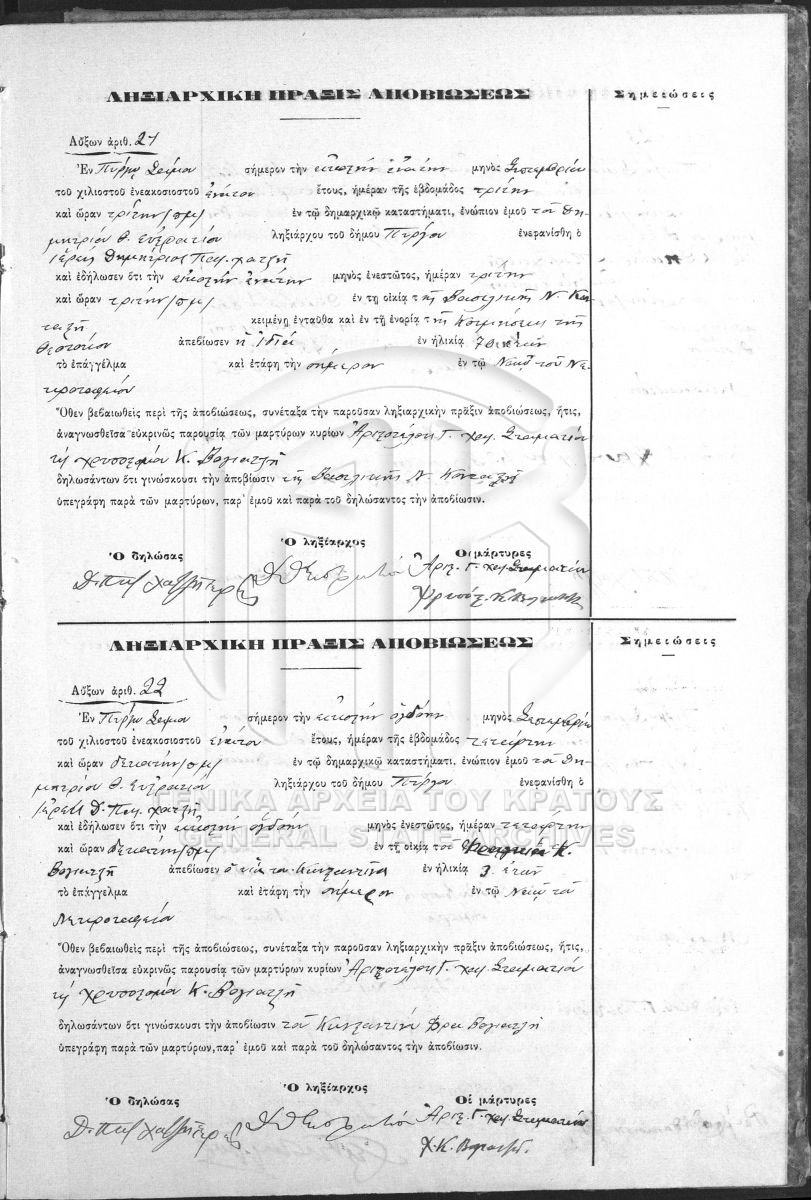 ΛΗΞΙΑΡΧΙΚΗ ΠΡΑΞΙΣ ΑΠΟΒΙΩΣΕΩΣ
Σημειώσεις
Αὔξων ἀριθ. 21
Ἐν Πύργῳ Σάμου σήμερον τὴν εἰκοστὴν ἐνάτην μηνὸς Σεπτεμβρίου
τοῦ χιλιοστοῦ ἐνεακοσιοστοῦ ἐνάτου ἔτους, ἡμέραν τῆς ἑβδομάδος τρίτην
καὶ ὥραν τρίτην /πμ/ ἐν τῷ δημαρχικῷ καταστήματι, ἐνώπιον ἐμοῦ τοῦ Δη-
μητρίου Θ. Εὐστρατίου ληξιάρχου τοῦ δήμου Πύργου ἐνεφανίσθη ὁ
ἱερεὺς Δημήτριος Παπ. χατζῆ
καὶ ἐδήλωσεν ὅτι τὴν εἰκοστὴν ἐνάτην μηνὸς ἐνεστῶτος, ἡμέραν τρίτην
καὶ ὥραν τρίτην /πμ/ ἐν τῃ οἰκίᾳ τῆς Βασιλικῆς Ν. Κον-
ταξῆ κειμένῃ ἐνταῦθα καὶ ἐν τῇ ἐνορίᾳ τῆς Κοιμήσεως τῆς
Θεοτόκου ἀπεβίωσεν ἡ ἰδία ἐν ἡλικίᾳ 70 ἐτῶν
τὸ ἐπάγγελμα καὶ ἐτάφη τὴν σήμερον ἐν τῷ Ναῷ τοῦ Νε-
κροταφείου
Ὅθεν βεβαιωθεὶς περὶ τῆς ἀποβιώσεως, συνέταξα τὴν παροῦσαν ληξιαρχικὴν πρᾶξιν ἀποβιώσεως, ἥτις,
ἀναγνωσθεῖσα εὐκρινῶς παρουσίᾳ τῶν μαρτύρων κυρίων Ἀριστοτέλους Γ. χατ. Σταματίου
καὶ χρυσοστόμου Κ. Βογιατζῆ
δηλωσάντων ὅτι γινώσκουσι τὴν ἀποβίωσιν τῆς Βασιλικῆς Ν. Κονταξῆ
ὑπεγράφη παρὰ τῶν μαρτύρων, παρ' ἐμοῦ καὶ παρὰ τοῦ δηλώσαντος τὴν ἀποβίωσιν.
Ὁ δηλώσας Ὁ ληξίαρχος Οἱ μάρτυρες
Δ. Παπ χατζῆ ἱερεὺς Δ Θ Εὐστρατίου Ἀριστ. Γ. χατ Σταματίου
Χρυσόστ. Κ. Βογιατζῆς
ΛΗΞΙΑΡΧΙΚΗ ΠΡΑΞΙΣ ΑΠΟΒΙΩΣΕΩΣ
Σημειώσεις
Αὔξων ἀριθ. 22
Ἐν Πύργῳ Σάμου σήμερον τὴν εἰκοστὴν ὀγδόην μηνὸς Σεπτεμβρίου
τοῦ χιλιοστοῦ ἐνεακοσιοστοῦ ἐνάτου ἔτους, ἡμέραν τῆς ἑβδομάδος τετάρτην
καὶ ὥραν δεκάτην /πμ/ ἐν τῷ δημαρχικῷ καταστήματι, ἐνώπιον ἐμοῦ τοῦ Δη-
μητρίου Θ. Εὐστρατίου ληξιάρχου τοῦ δήμου Πύργου ἐνεφανίσθη ὁ
ἱερεὺς Δ. Παπ. χατζῆ
καὶ ἐδήλωσεν ὅτι τὴν εἰκοστὴν ὀγδόην μηνὸς ἐνεστῶτος, ἡμέραν τετάρτην
καὶ ὥραν δεκάτην /πμ/ ἐν τῇ οἰκίᾳ τοῦ Κ.
Βογιατζῆ ἀπεβίωσεν ὁ υἱός του Κωνσταντῖνος ἐν ἡλικίᾳ 3 ἐτῶν
τὸ ἐπάγγελμα καὶ ἐτάφη τὴν σήμερον ἐν τῷ Ναῷ τοῦ
Νεκροταφείου
Ὅθεν βεβαιωθεὶς περὶ τῆς ἀποβιώσεως, συνέταξα τὴν παροῦσαν ληξιαρχικὴν πρᾶξιν ἀποβιώσεως, ἥτις,
ἀναγνωσθεῖσα εὐκρινῶς παρουσίᾳ τῶν μαρτύρων κυρίων Ἀριστοτέλους Γ. χατ. Σταματίου
καὶ χρυσοστόμου Κ. Βογιατζῆ
δηλωσάντων ὅτι γινώσκουσι τὴν ἀποβίωσιν τοῦ Κωνσταντίνου Βογιατζῆ
ὑπεγράφη παρὰ τῶν μαρτύρων, παρ' ἐμοῦ καὶ παρὰ τοῦ δηλώσαντος τὴν ἀποβίωσιν.
Ὁ δηλώσας Ὁ ληξίαρχος Οἱ μάρτυρες
Δ. Παπ χατζῆ ἱερεὺς Δ Θ Εὐστρατίου Ἀριστ. Γ. χατ Σταματίου
Χ. Κ. Βογιατζῆς
ΓΕΝΙΚΑ ΑΡΧΕΙΑ ΤΟΥ ΚΡΑΤΟΥΣ
GENERAL STATE ARCHIVES